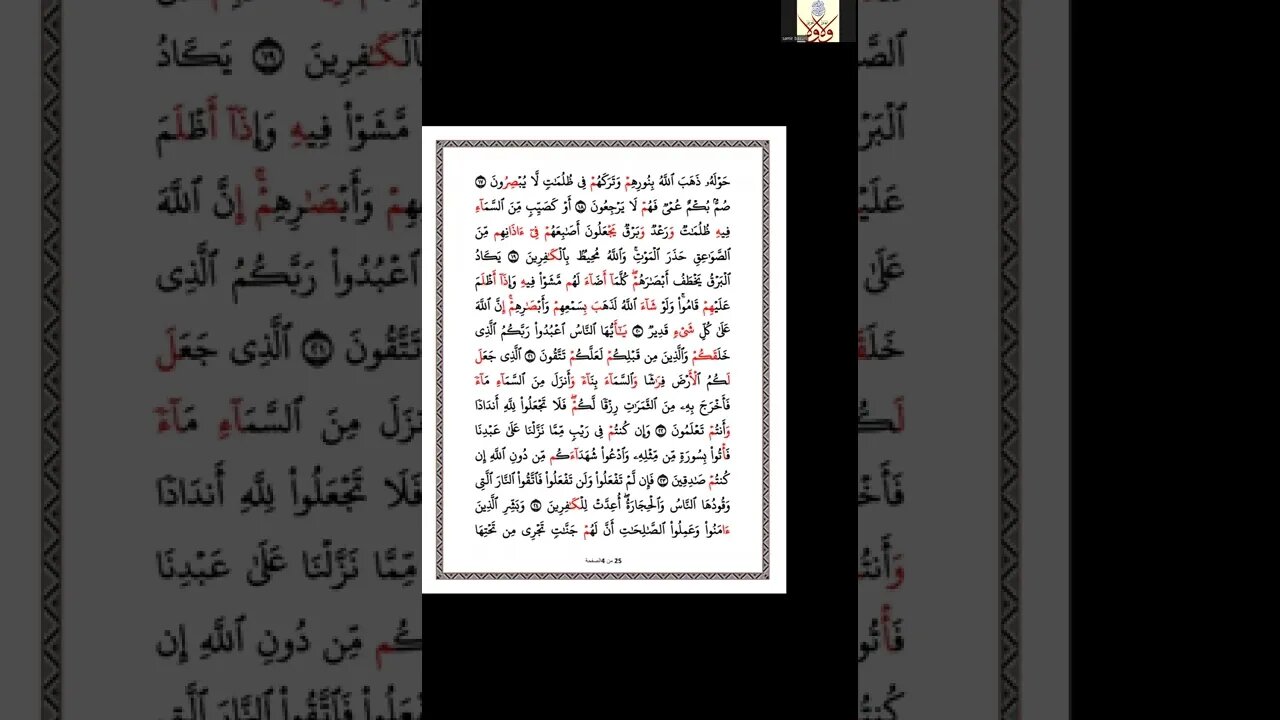 حَوْلَهُۥ ذَهَبَ ٱللَّهُ بِنُورِهِمْ وَتَرَكَهُمْ فِى ظُلُمَٰتٍ لَّا يُبْصِرُونَ ١٧
صُمٌّۢ بُكْمٌ عُمْىٌ فَهُمْ لَا يَرْجِعُونَ ١٨ أَوْ كَصَيِّبٍ مِّنَ ٱلسَّمَآءِ
فِيهِ ظُلُمَٰتٌ وَرَعْدٌ وَبَرْقٌ يَجْعَلُونَ أَصَٰبِعَهُمْ فِىٓ ءَاذَانِهِم مِّنَ
ٱلصَّوَٰعِقِ حَذَرَ ٱلْمَوْتِۚ وَٱللَّهُ مُحِيطٌۢ بِٱلْكَٰفِرِينَ ١٩ يَكَادُ
ٱلْبَرْقُ يَخْطَفُ أَبْصَٰرَهُمْۖ كُلَّمَآ أَضَآءَ لَهُم مَّشَوْا۟ فِيهِ وَإِذَآ أَظْلَمَ
عَلَيْهِمْ قَامُوا۟ۚ وَلَوْ شَآءَ ٱللَّهُ لَذَهَبَ بِسَمْعِهِمْ وَأَبْصَٰرِهِمْۚ إِنَّ ٱللَّهَ
عَلَىٰ كُلِّ شَىْءٍ قَدِيرٌ ٢٠ يَٰٓأَيُّهَا ٱلنَّاسُ ٱعْبُدُوا۟ رَبَّكُمُ ٱلَّذِى
خَلَقَكُمْ وَٱلَّذِينَ مِن قَبْلِكُمْ لَعَلَّكُمْ تَتَّقُونَ ٢١ ٱلَّذِى جَعَلَ
لَكُمُ ٱلْأَرْضَ فِرَٰشًا وَٱلسَّمَآءَ بِنَآءً وَأَنزَلَ مِنَ ٱلسَّمَآءِ مَآءً
فَأَخْرَجَ بِهِۦ مِنَ ٱلثَّمَرَٰتِ رِزْقًا لَّكُمْۖ فَلَا تَجْعَلُوا۟ لِلَّهِ أَندَادًا
وَأَنتُمْ تَعْلَمُونَ ٢٢ وَإِن كُنتُمْ فِى رَيْبٍ مِّمَّا نَزَّلْنَا عَلَىٰ عَبْدِنَا
فَأْتُوا۟ بِسُورَةٍ مِّن مِّثْلِهِۦ وَٱدْعُوا۟ شُهَدَآءَكُم مِّن دُونِ ٱللَّهِ إِن
كُنتُمْ صَٰدِقِينَ ٢٣ فَإِن لَّمْ تَفْعَلُوا۟ وَلَن تَفْعَلُوا۟ فَٱتَّقُوا۟ ٱلنَّارَ ٱلَّتِى
وَقُودُهَا ٱلنَّاسُ وَٱلْحِجَارَةُۖ أُعِدَّتْ لِلْكَٰفِرِينَ ٢٤ وَبَشِّرِ ٱلَّذِينَ
ءَامَنُوا۟ وَعَمِلُوا۟ ٱلصَّٰلِحَٰتِ أَنَّ لَهُمْ جَنَّٰتٍ تَجْرِى مِن تَحْتِهَا
الصفحة 4 من 25